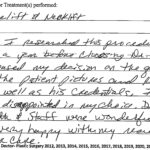 r Treatment(s) performed:
celift & Necklift
I researched this procedu
a year before choosing Dr.
based my decision on the g
the patient pictures and
well as his credentials. I
disappointed in my choice. D
& Staff were wonderfu
very happy with my resu
care
Doctor - Plastic Surgery 2012, 2013, 2014, 2015, 2016, 2017, 2018, 2019, 2020, 2